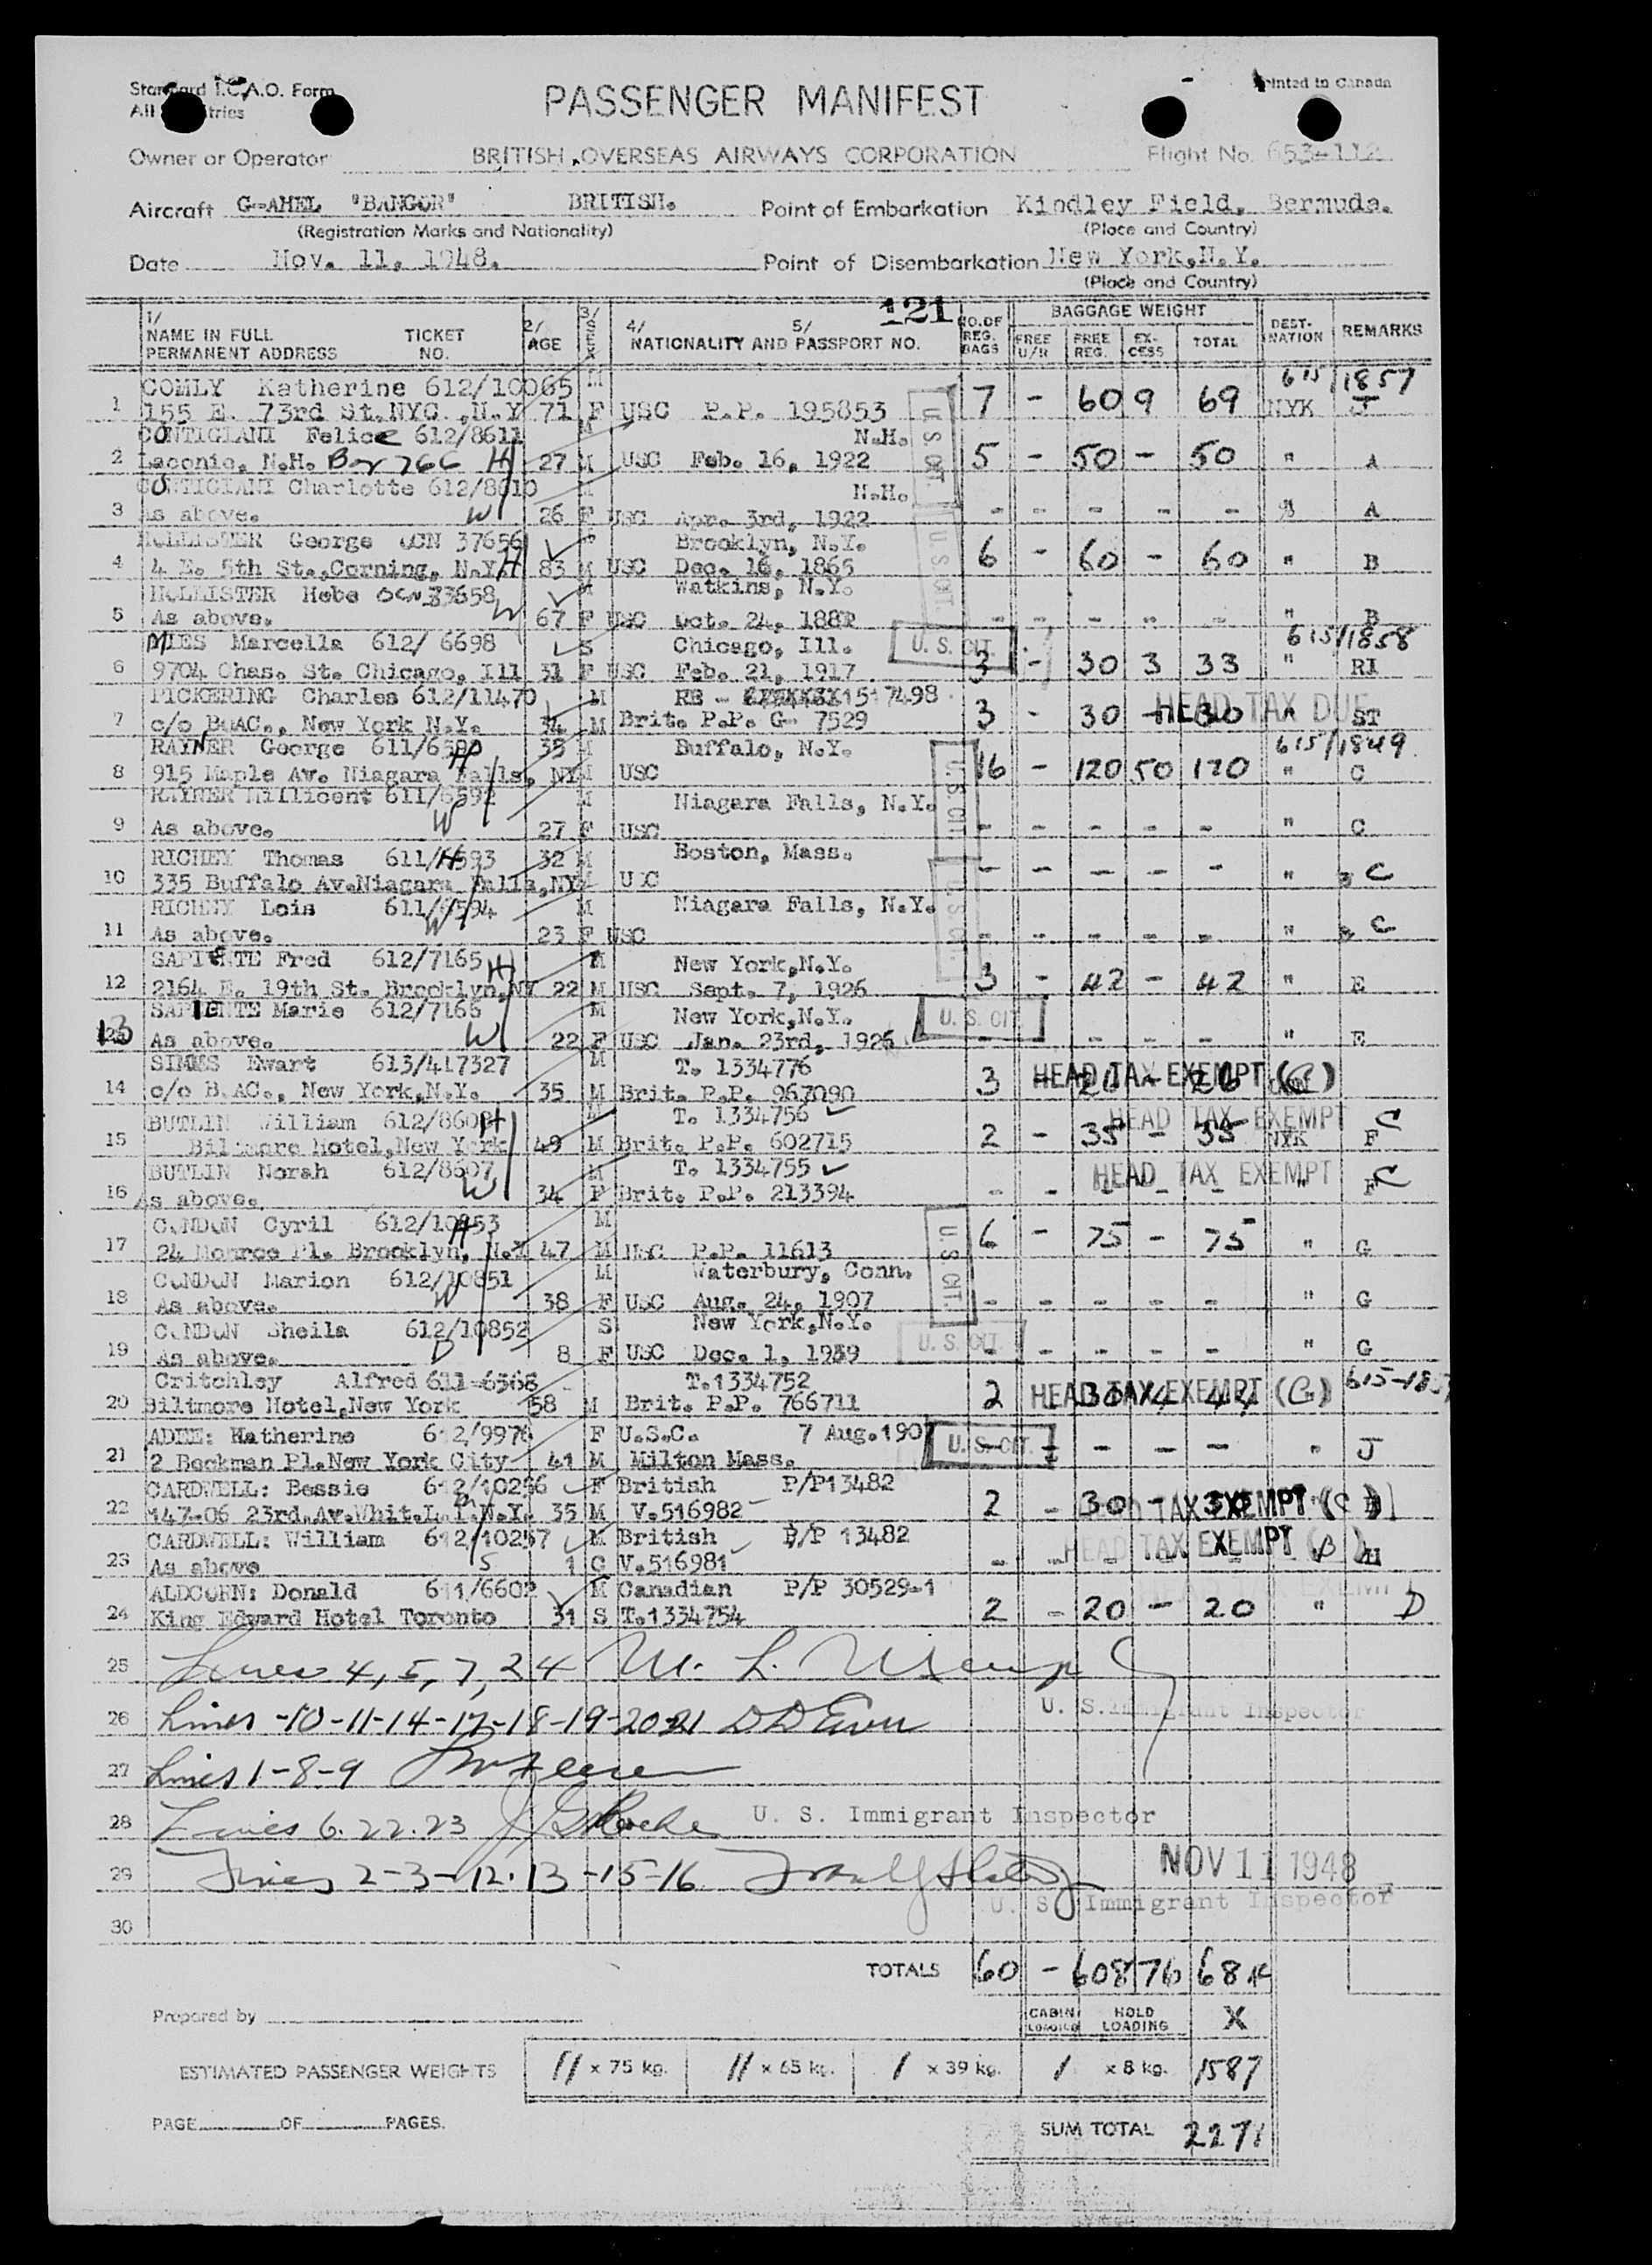 Standard I.C.A.O. Form
All
Printed in Canada
PASSENGER MANIFEST
Owner or Operator BRITISH OVERSEAS AIRWAYS CORPORATION Flight No. 653-112
Aircraft G-AHEL "BANGOR" BRITISH. Point of Embarkation Kindley Field, Bermuda.
(Registration Marks and Nationality) (Place and Country)
Date Nov. 11, 1948. Point of Disembarkation New York,N.Y.
(Place and Country)
121
1/ NAME IN FULL TICKET 2/ AGE 3/ SEX 4/ 5/ NO.OF REG. BAGS BAGGAGE WEIGHT DEST-NATION REMARKS
PERMANENT ADDRESS NO. NATIONALITY AND PASSPORT NO. FREE U/R FREE REG. EX-CESS TOTAL
COMLY Katherine 612/10065 M 615/1857
1 155 E. 73rd St.NYC.,N.Y 71 F USC P.P. 195853 7 - 60 9 69 NYK J
CONTIGIANI Felice 612/8611 M N.H.
2 Laconia, N.H. Box 766 H 27 M USC Feb. 16, 1922 5 - 50 - 50 " A
CONTIGIANI Charlotte 612/8610 M N.H.
3 As above. W 26 F USC Apr. 3rd, 1922 - - - - - " A
HOLLISTER George OCN 37656 Brooklyn, N.Y.
4 4 E. 5th St.,Corning, N.Y. H 83 M USC Dec. 16, 1865 6 - 60 - 60 " B
HOLLISTER Hebe OCN 33658 M Watkins, N.Y.
5 As above. W 67 F USC Oct. 24, - - - - - " B
MIES Marcella 612/ 6698 S Chicago, Ill. U. S. CIT. 615/1858
6 9704 Chas. St. Chicago, Ill 31 F USC Feb. 21, 1917 3 - 30 3 33 " RI
PICKERING Charles 612/11470 M RE - 7498 HEAD TAX DUE
7 c/o BOAC., New York N.Y. 34 M Brit. P.P. G- 7529 3 - 30 - 30 " ST
RAYNER George 611/6590 35 M Buffalo, N.Y. 615/1849
8 915 Maple Av. Niagara Falls, NY M USC 16 - 120 50 170 " C
RAYNER Millicent 611/6592 M Niagara Falls, N.Y.
9 As above. W 27 F USC - - - - - " C
RICHEY Thomas 611/6593 32 M Boston, Mass.
10 335 Buffalo Av.Niagara Falls,NY - - - - - " C
RICHEY Lois 611/6594 M Niagara Falls, N.Y.
11 As above. W 23 F USC - - - - - " C
SAPIENTE Fred 612/7165 H M New York,N.Y.
12 2164 E. 19th St. Brooklyn,NY 22 M USC Sept. 7, 1926 3 - 42 - 42 " E
SAPIENTE Marie 612/7166 M New York,N.Y. U. S. CIT.
13 As above. W 22 F USC Jan. 23rd, 1926 - - - - - " E
SIMMS Ewart 613/417327 M T. 1334776 HEAD TAX EXEMPT (C)
14 c/o B.AC., New York,N.Y. 35 M Brit. P.P. 967090 3 - 26 - 26
BUTLIN William 612/8608 H M T. 1334756 HEAD TAX EXEMPT C
15 Biltmore Hotel,New York 49 M Brit. P.P. 602715 2 - 35 - 35 NYK F
BUTLIN Norah 612/8607 M T. 1334755 HEAD TAX EXEMPT C
16 As above. W 34 F Brit. P.P. 213394 - - - - - " F
CONDON Cyril 612/10853 H M
17 24 Monroe Pl. Brooklyn, N.Y 47 M USC P.P. 11613 6 - 75 - 75 " G
CONDON Marion 612/10851 M Waterbury, Conn.
18 As above. W 38 F USC Aug. 24, 1907 - - - - - " G
CONDON Sheila 612/10852 S New York,N.Y. U. S. CIT.
19 As above. D 8 F USC Dec. 1, 1939 - - - - - " G
Critchley Alfred 611-6568 T.1334752 HEAD TAX EXEMPT (G) 615-185
20 Biltmore Hotel,New York 58 M Brit. P.P. 766711 2
ADEE: Katherine 612/9976 F U.S.C. 7 Aug.1907 U. S. CIT.
21 2 Beekman Pl.New York City 41 M Milton Mass. - - - - - " J
CARDWELL: Bessie 612/10256 F British P/P13482
22 147-06 23rd.Av.Whit.L.I.N.Y. 35 M V.516982 2 - 30 - 30 TAX EXEMPT
CARDWELL: William 612/10257 M British P/P 13482 HEAD TAX EXEMPT
23 As above S 1 C V.516981 - - - - - H
ALDCORN: Donald 611/6602 M Canadian P/P 30529-1 HEAD TAX EXEMPT
24 King Edward Hotel Toronto 31 S T.1334754 2 - 20 - 20 " D
25 Lines 4, 5, 7, 24
26 Lines -10-11-14-17-18-19-20-21 U. S. Immigrant Inspector
27 Lines 1-8-9
28 Lines 6. 22. 23 U. S. Immigrant Inspector
29 Lines 2-3-12.13-15-16 NOV 11 1948
U. S. Immigrant Inspector
30
TOTALS 60 - 608 76 684
Prepared by CABIN LOADING HOLD LOADING X
ESTIMATED PASSENGER WEIGHTS 11 x 75 kg. 11 x 65 kg. 1 x 39 kg. 1 x 8 kg. 1587
PAGE OF PAGES.
SUM TOTAL 2271